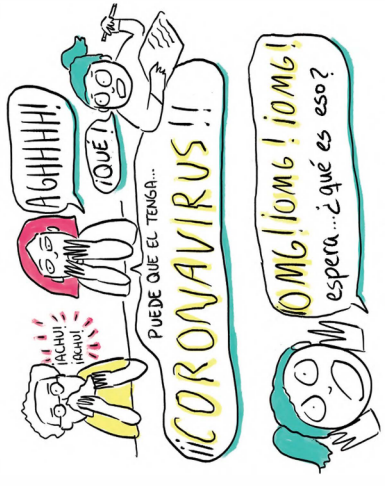 ¡ACHU!
¡ACHU!
AGHHHH!
¡QUÉ!
PUEDE QUE EL TENGA...
¡¡CORONAVIRUS!!
¡OMG! ¡OMG! ¡OMG!
espera...¿qué es eso?